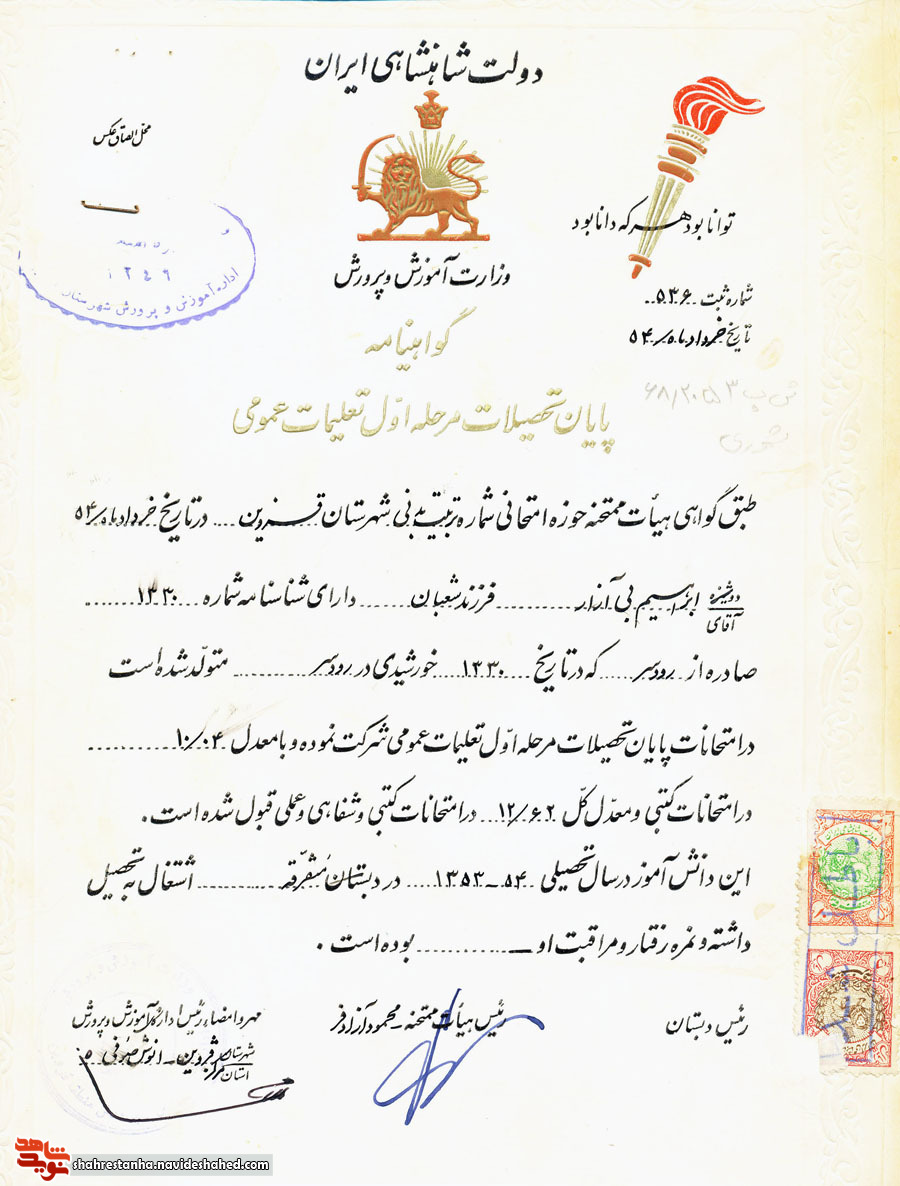 دولت شاهنشاهی ایران
محل الصاق عکس
توانا بود هر که دانا بود
وزارت آموزش و پرورش
شماره ثبت ۵۳۶
تاریخ خرداد ماه ۵۴
اداره آموزش و پرورش شهرستان
گواهینامه
پایان تحصیلات مرحله اول تعلیمات عمومی
طبق گواهی هیأت ممتحنه حوزه امتحانی شماره تربیت بدنی شهرستان قزوین در تاریخ خرداد ماه ۵۴
دوشیزه
آقای
ابراهیم بی آزار فرزند شعبان دارای شناسنامه شماره ۱۳۳۰
صادره از رودسر که در تاریخ ۱۳۳۰ خورشیدی در رودسر متولد شده است
در امتحانات پایان تحصیلات مرحله اول تعلیمات عمومی شرکت نموده و با معدل ۱۰/۰۴
در امتحانات کتبی و معدل کل ۱۲/۶۲ در امتحانات کتبی و شفاهی و عملی قبول شده است.
این دانش آموز در سال تحصیلی ۵۴-۱۳۵۳ در دبستان متفرقه اشتغال به تحصیل
داشته و نمره رفتار و مراقبت او ــ بوده است.
رئیس دبستان
رئیس هیأت ممتحنه - محمود آزادفر
مهر و امضاء رئیس اداره کل آموزش و پرورش
شهرستان
استان
مرکز قزوین - انوش صرفی
نوید شاهد
shahrestanha.navideshahed.com